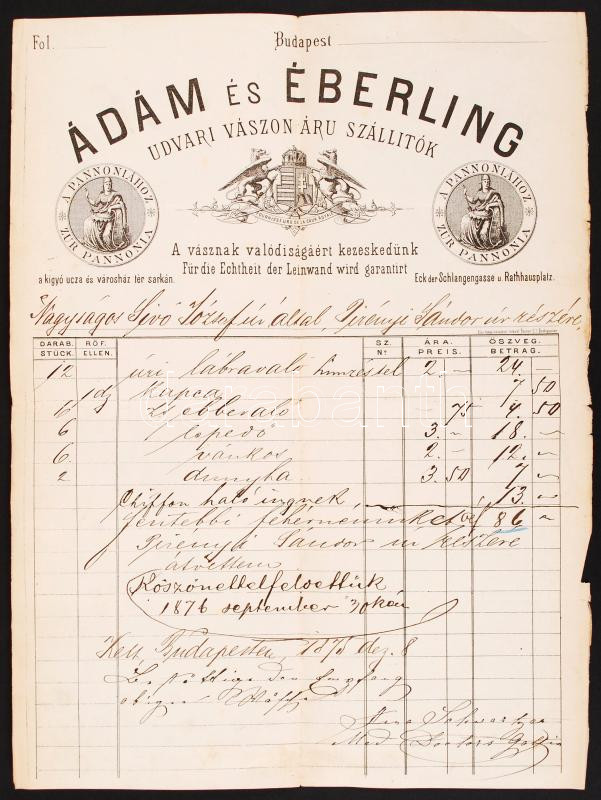 Fol. Budapest
ÁDÁM ÉS ÉBERLING
UDVARI VÁSZON ÁRU SZÁLLITÓK
A PANNONIÁHOZ
ZUR PANNONIA
A PANNONIÁHOZ
ZUR PANNONIA
A vásznak valódiságáért kezeskedünk
Für die Echtheit der Leinwand wird garantirt
a kigyó ucza és városház tér sarkán.
Eck der Schlangengasse u. Rathhausplatz.
Nagyságos Sivó József úr által, Perényi Sándor úr részére
DARAB. RÖF. SZ. ÁRA. ÖSZVEG.
STÜCK. ELLEN. No PREIS. BETRAG.
12 úri lábravaló himzéstel 2. – 24. –
kapca 7 50
6 zsebbevaló – 75 4. 50
6 lepedő 3. – 18. –
6. vánkos 2. – 12. –
2 dunyha 3. 50 7 –
Chiffon haló ingnek, 13. –
fentebbi fehérneműket 86 –
Perényi Sándor úr részére
átvettem
Köszönettel felvettük
1876 september 30kán
Kelt Budapesten, 187 dez. 8
den Empfang
obiger